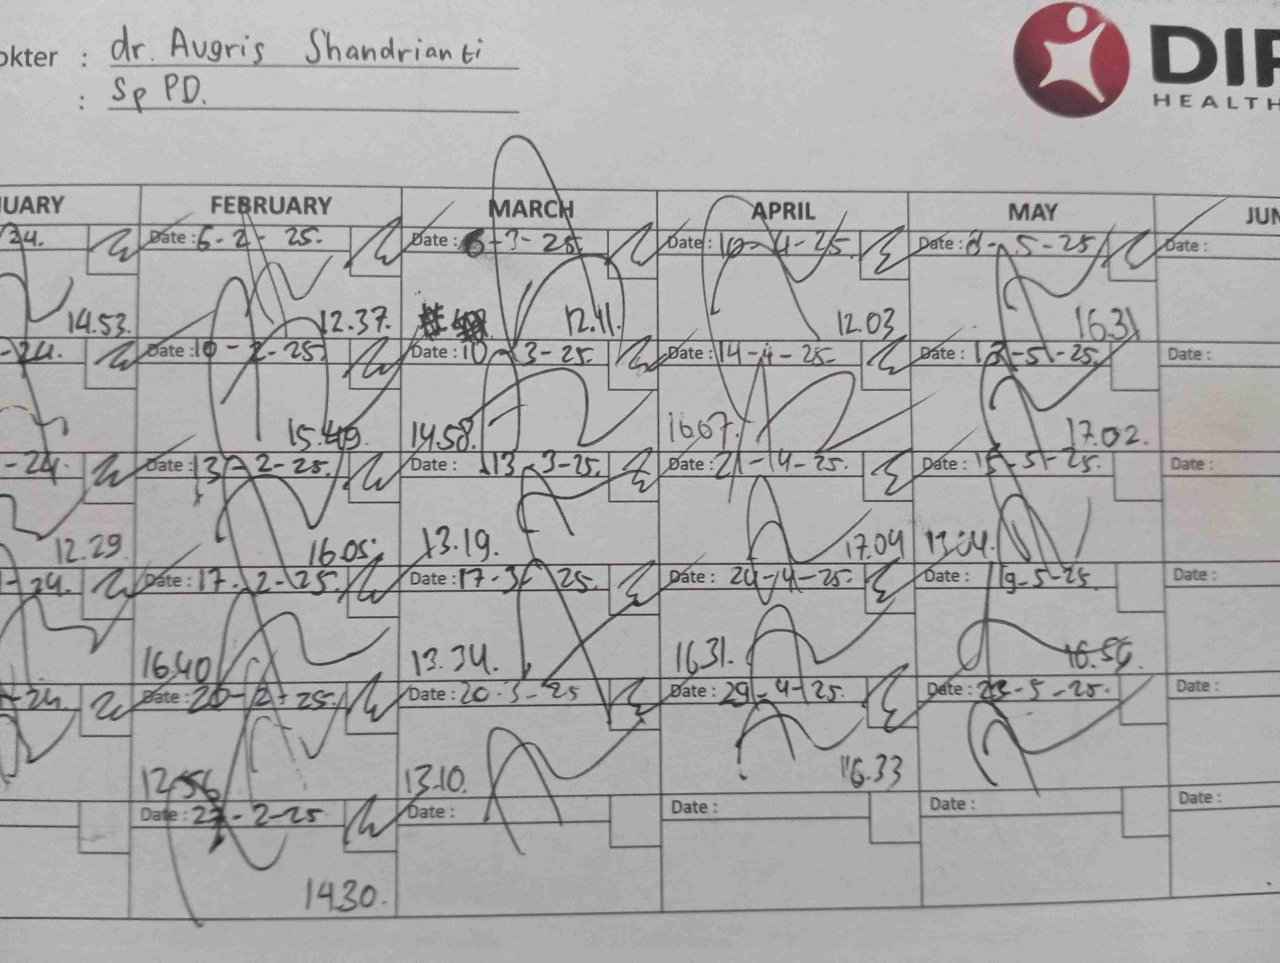 okter : dr. Augris Shandrianti
: Sp PD.
DIF
HEALTH
UARY FEBRUARY MARCH APRIL MAY JUN
24. Date : 6-2-25. Date : 6-3-25. Date : 10-4-25. Date : 8-5-25 Date :
14.53. 12.37. 12.11. 12.03 16.31
-24. Date : 10-2-25. Date : 10-3-25. Date : 14-4-25. Date : 13-5-25. Date :
15.49. 14.58. 16.07. 17.02.
-24. Date : 13-2-25. Date : 13-3-25. Date : 21-4-25. Date : 15-5-25. Date :
12.29. 16.05. 13.19. 17.04
-24. Date : 17-2-25. Date : 17-3-25. Date : 24-4-25. Date : 19-5-25. Date :
16.40 13.34. 16.31.
-24. Date : 20-2-25. Date : 20-3-25 Date : 29-4-25. Date : 23-5-25. Date :
12.56 13.10. 16.33
Date : 27-2-25 Date : Date : Date : Date :
14.30.